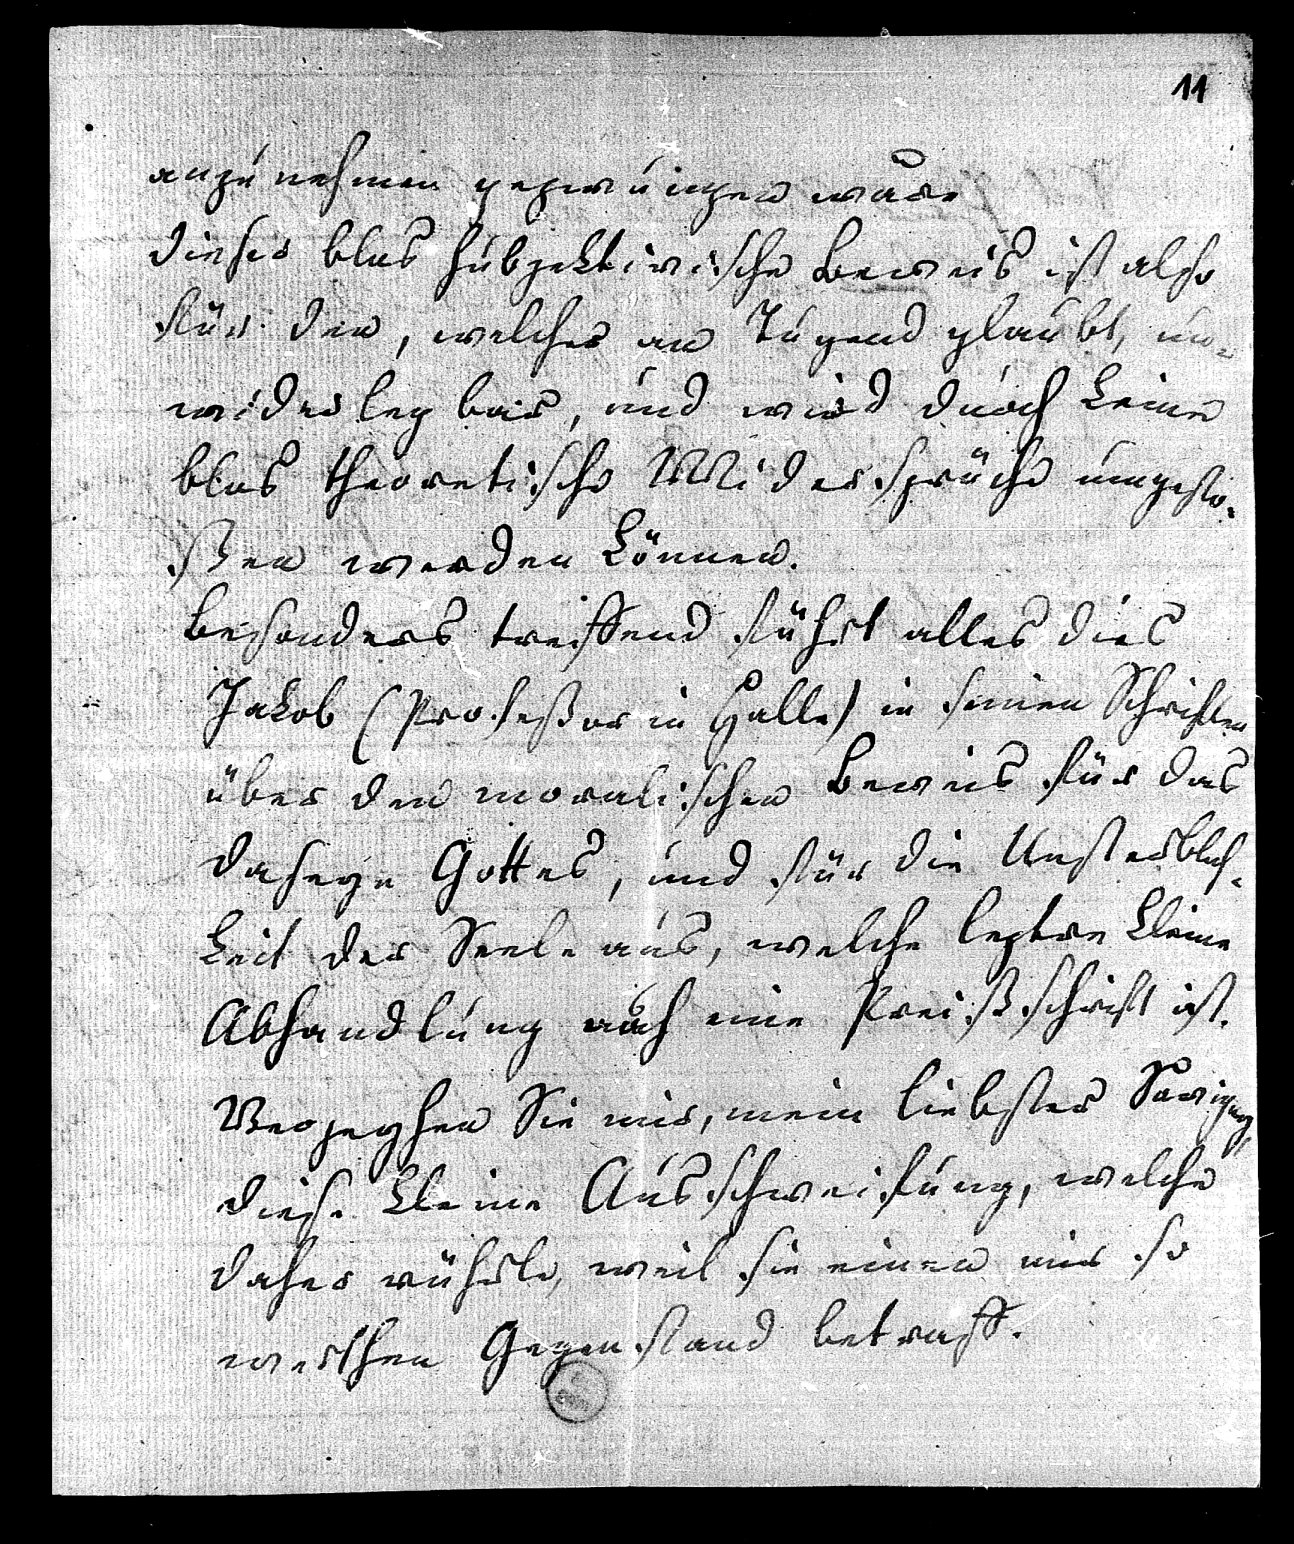 11
anzunehmen gezwungen wäre
Dieser blos subjektivische Beweis ist also
für den, welcher an Tugend glaubt, un-
widerlegbar, und wird durch keine
blos theoretische Widersprüche umgesto-
ßen werden können.
Besonders treffend führt alles dies
Jakob (Profeßor in Halle) in seinen Schriften
über den moralischen Beweis für das
Daseyn Gottes, und für die Unsterblich-
keit der Seele aus, welche leztre kleine
Abhandlung auch eine Preißschrift ist.
Verzeyhen Sie mir, mein liebster Savigny,
diese kleine Ausschweifung, welche
daher rührte, weil sie einen mir so
werthen Gegenstand betraff.